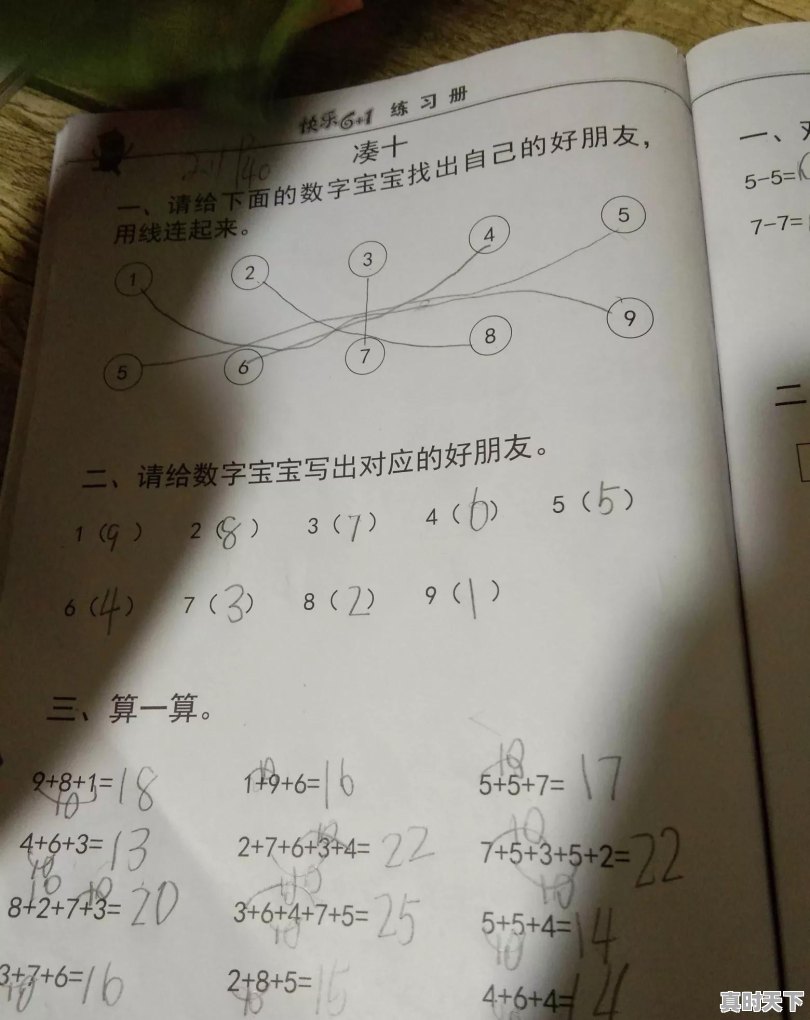 快乐6+1 练习册
凑十
一、请给下面的数字宝宝找出自己的好朋友，
用线连起来。
1 2 3 4 5
5 6 7 8 9
二、请给数字宝宝写出对应的好朋友。
1（9） 2（8） 3（7） 4（6） 5（5）
6（4） 7（3） 8（2） 9（1）
三、算一算。
9+8+1=18 1+9+6=16 5+5+7=17
10 10 10
4+6+3=13 2+7+6+3+4=22 7+5+3+5+2=22
10 10 10 10 10
8+2+7+3=20 3+6+4+7+5=25 5+5+4=14
10 10 10 10 10
3+7+6=16 2+8+5=15 4+6+4=14
10 10 10
一、
5-5=
7-7=
二
真时天下